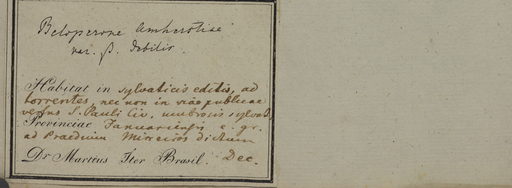 Beloperone Amherstiae
var. β. debilis.
Habitat in sylvaticis editis, ad
torrentes, nec non in viae publicae
versus S. Pauli Civ. umbrosis sylvat.
Provinciae Januariensis e. gr.
ad Praedium Mineiros dictum
Dr. Martius Iter Brasil. Dec.